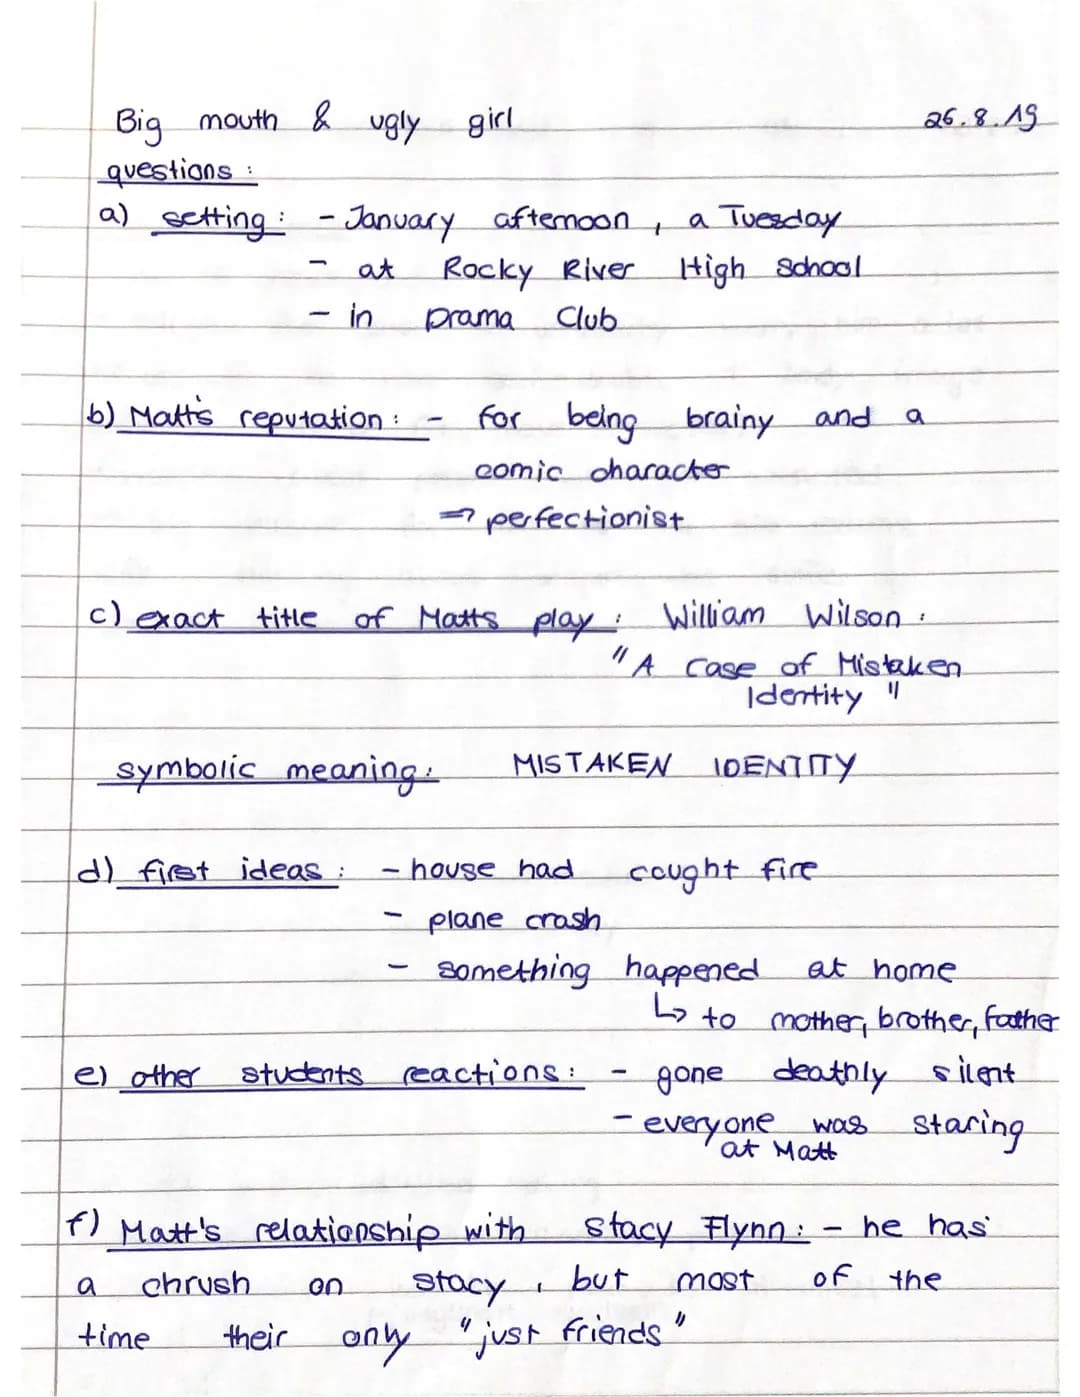 Big mouth & ugly girl 26.8.19
questions :
a) setting : - January afternoon , a Tuesday
- at Rocky River High School
- in Drama Club
b) Matt's reputation : - for being brainy and a
comic character
=> perfectionist
c) exact title of Matts play : William Wilson :
"A Case of Mistaken
Identity "
symbolic meaning : MISTAKEN IDENTITY
d) first ideas : - house had cought fire
- plane crash
- something happened at home
↳ to mother, brother, father
e) other students reactions : - gone deathly silent
- everyone was staring
at Matt
f) Matt's relationship with Stacy Flynn : - he has
a chrush on Stacy , but most of the
time their only "just friends"